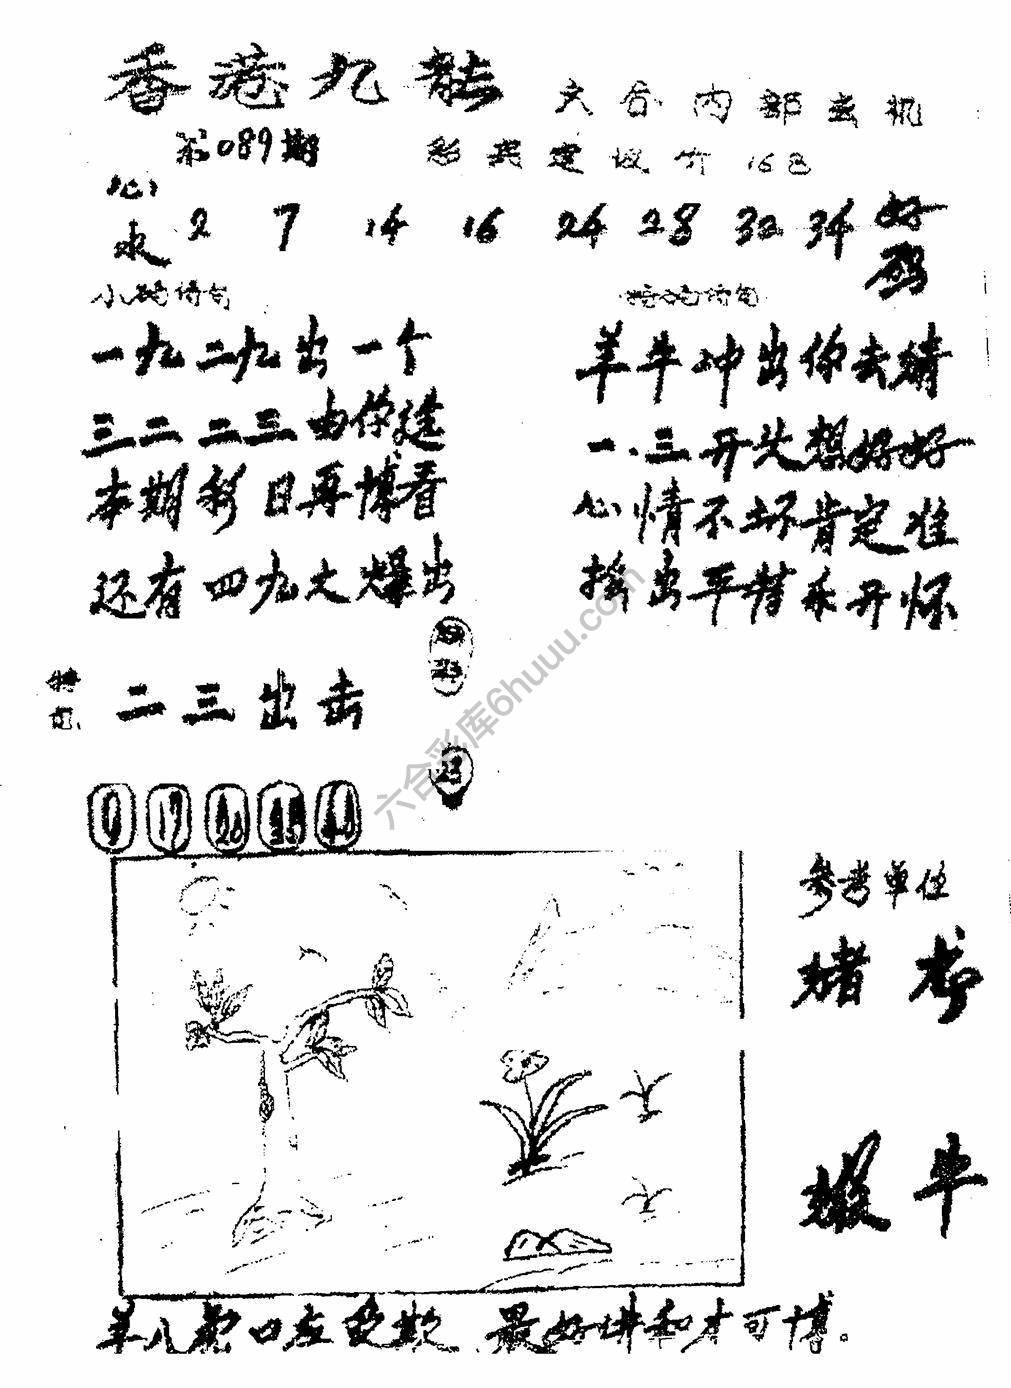 香港九龍
六合内部玄机
第089期
168
心水 2 7 14 16 24 28 32 34 好码
小码诗句
特码诗句
一九二九出一个
三二二三由你选
本期彩日再博看
还有四九大爆出
羊牛冲出你去猜
一.三开头想好好
心情不坏肯定准
摇出平特乐开怀
特码
二三出击
23
9 19 20 35 48
参考单位
猪 虎
猴 牛
羊八虎口在受欺 最好讲和才可博。
六合彩库6huuu.com